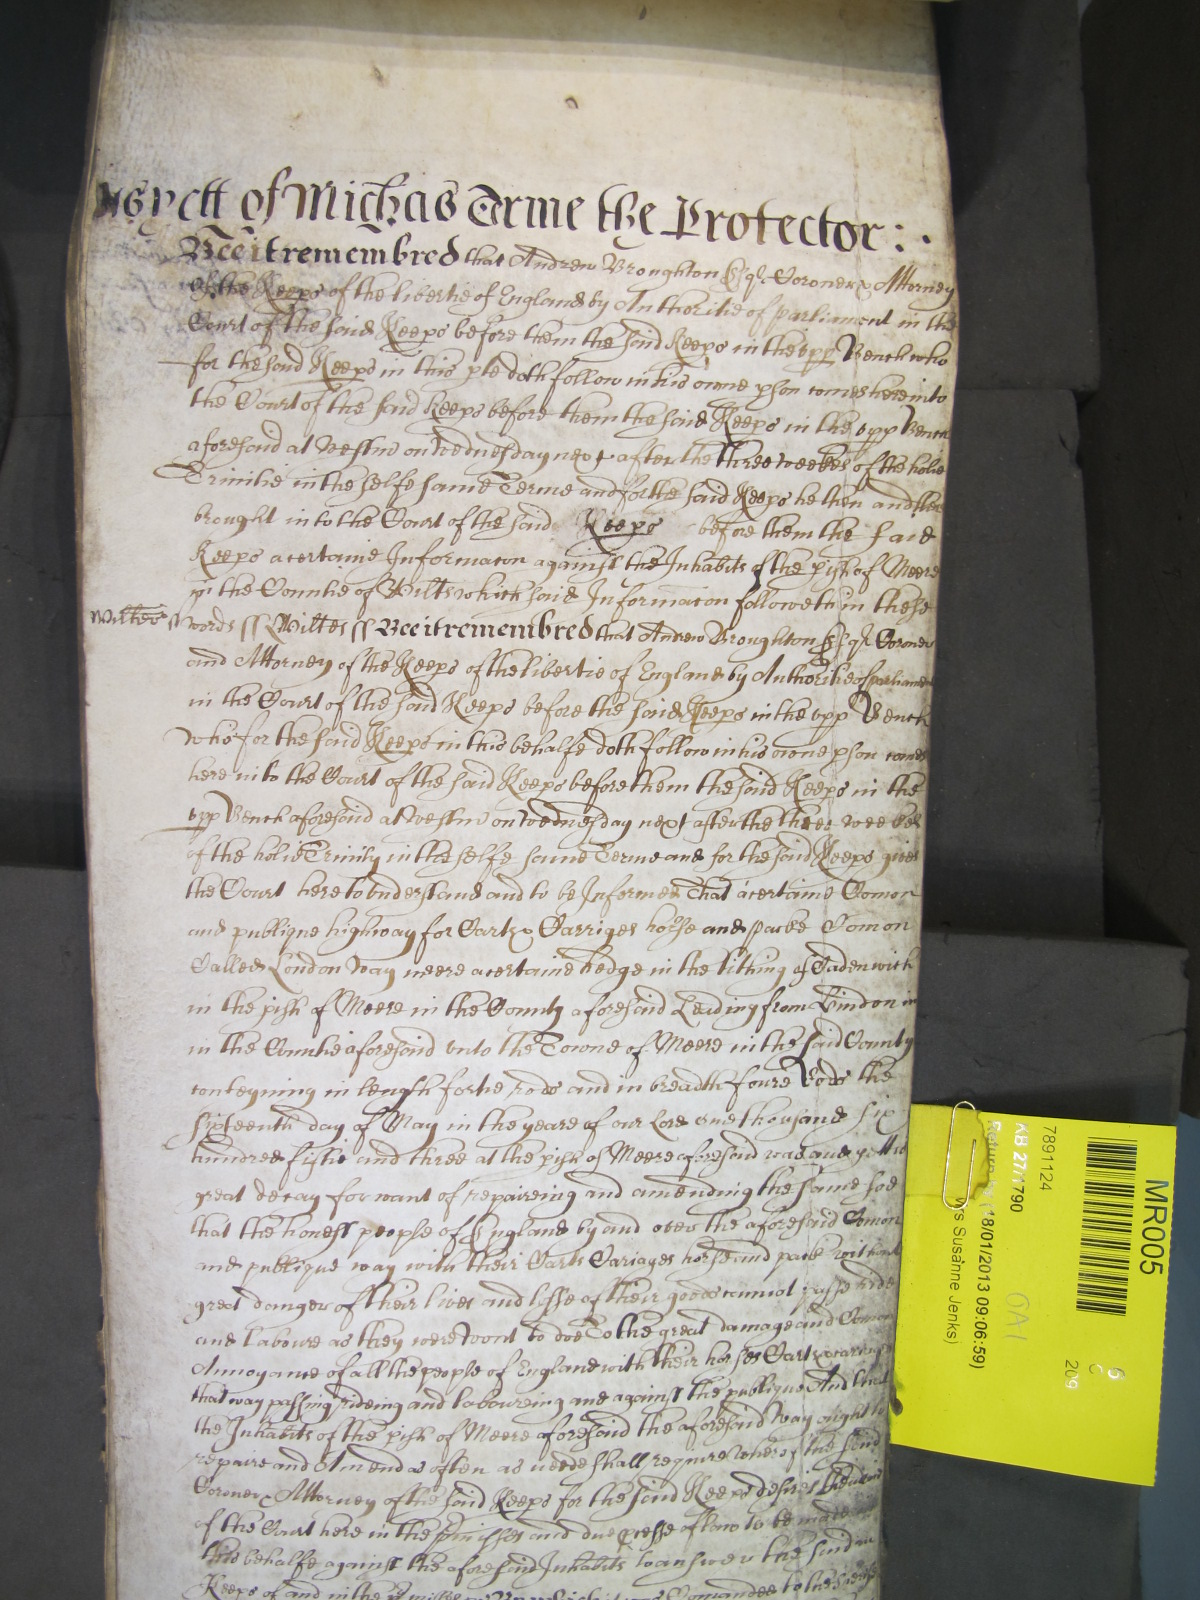 as yett of Michas Terme the Protector : .
Bee it remembred that Andrew Broughton Esqr Coroner & Attorney
of the Keeps of the libertie of England by Authoritie of parliament in the
Court of the said Keeps before them the said Keeps in the upp Bench who
for the said Keeps in this ple doth follow in his owne pson comes here into
the Court of the said keeps before them the said Keeps in the upp Bench
aforesaid at Westm on Wednesday next after the three weekes of the holie
Trinitie in the selfe same Terme and for the said Keeps he then and there
brought into the Court of the said Keeps before them the said
Keeps a certaine Informacon against the Inhabits of the pish of Meere
in the Countie of Wilts which said Informacon followeth in these
Wiltes
words ss Wiltes ss Bee it remembred that Andrew Broughton Esqr Coroner
and Attorney of the Keeps of the libertie of England by Authoritie of parliament
in the Court of the said Keeps before the said Keeps in the upp Bench
who for the said Keeps in this behalfe doth follow in his owne pson comes
here into the Court of the said Keeps before them the said Keeps in the
upp Bench aforesaid at Westm on Wednesday next after the three weekes
of the holie Trinity in the selfe same Terme and for the said Keeps gives
the Court here to understand and to be Informed That a certaine Comon
and publique highway for Carts & Carriges horse and packe Comon
Called London Way neere a certaine hedge in the tithing of Zadenwich
in the pish of Meere in the County aforesaid Leading from Hindon in
in the Countie aforesaid unto the Towne of Meere in the said County
conteyning in length fortie rods and in breadth foure Rods the
sixteenth day of May in the yeare of our lord one thousand six
hundred fiftie and three at the pish of Meere aforesaid was and yett is
great decay for want of repaireing and amending the same soe
that the honest people of England by and over the aforesaid Comon
and publique way with their Carts Cariages horse and pack without
great danger of their lives and losse of their goods cannot passe ride
and labour as they were wont to doe To the great damage and Comon
Annoyance of all the people of England with their horses Carts & carriages
that way passing rideing and laboureing and against the publique And that
the Inhabits of the pish of Meere aforesaid the aforesaid way ought to
repaire and Amend as often as neede shall require Whereof the said
Coroner & Attorney of the said Keeps for the said Keeps desires the advice
of the Court here in the pmisses and due pcesse of law to be made
this behalfe against the aforesaid Inhabits to answer the said
Keeps of and in the pmisses By which it was Comanded to the
MR005
6
209
OA1
7891124
KB 27/1790
Return by (18/01/2013 09:06:59)
Mrs Susanne Jenks)